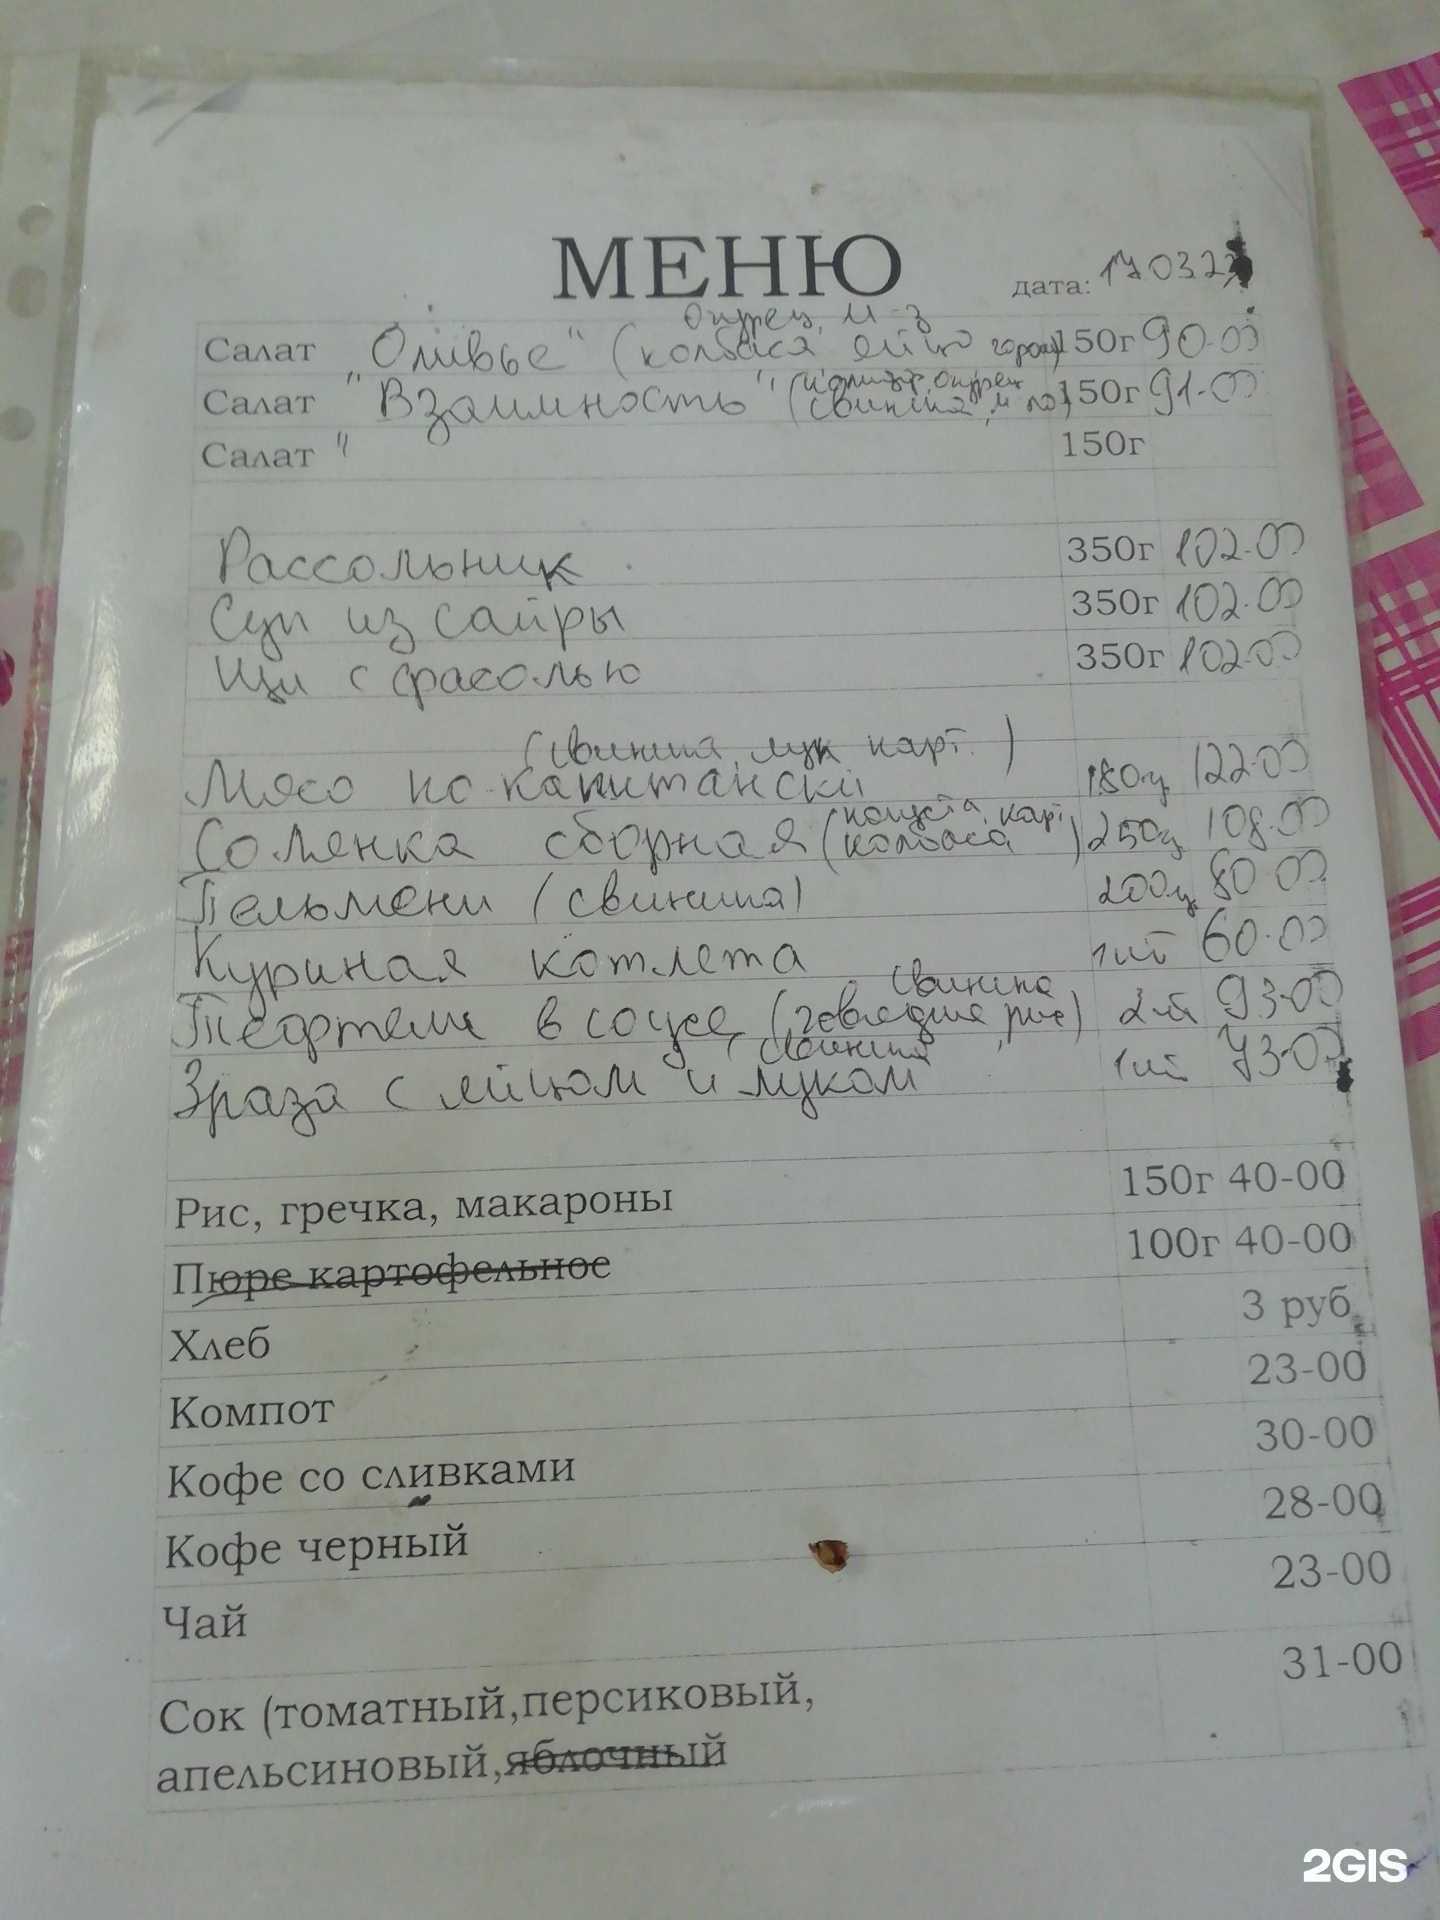 МЕНЮ
дата: 170322
огурец, м-з
Салат "Оливье" (колбаса яйцо горош) 150г 90-00
огурец
Салат "Взаимность" (свинина, м 150г 91-00
Салат " 150г
Рассольник 350г 102-00
Суп из сайры 350г 102-00
Щи с фасолью 350г 102-00
(свинина, лук карт.)
Мясо по-капитански 180г 122-00
капуста, карт
Солянка сборная (колбаса) 250г 108-00
Пельмени (свинина) 200г 80-00
Куриная котлета 1шт 60-00
свинина
Тефтели в соусе (говядина, рис) 2шт 93-00
свинина
Зраза с яйцом и луком 1шт 73-00
Рис, гречка, макароны 150г 40-00
Пюре картофельное 100г 40-00
Хлеб 3 руб
Компот 23-00
Кофе со сливками 30-00
Кофе черный 28-00
Чай 23-00
Сок (томатный,персиковый, 31-00
апельсиновый,яблочный
2GIS